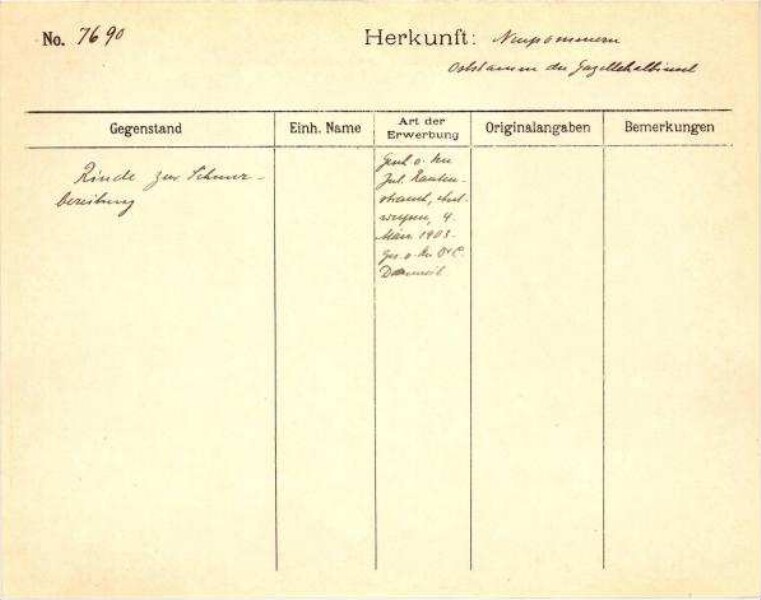 No. 7690
Herkunft: Neupommern
Oststamm der Gazellehalbinsel
Gegenstand
Einh. Name
Art der Erwerbung
Originalangaben
Bemerkungen
Rinde zur Schnur-
bereitung
Gesch. v. Frau
Jul. Rauten-
strauch,
4.
März 1903.
Ges. v.